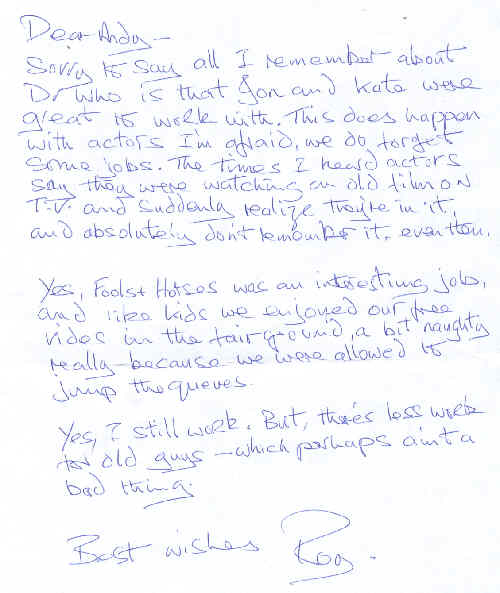 Dear Andy —
Sorry to say all I remember about
Dr Who is that Jon and Kate were
great to work with. This does happen
with actors I'm afraid, we do forget
some jobs. The times I heard actors
say they were watching an old film on
T.V. and suddenly realize they're in it,
and absolutely don't remember it, even then.
Yes, Fools + Horses was an interesting job,
and like kids we enjoyed our free
rides in the fairground, a bit naughty
really because we were allowed to
jump the queues.
Yes, I still work. But, there's less work
for old guys — which perhaps ain't a
bad thing.
Best wishes Roy.